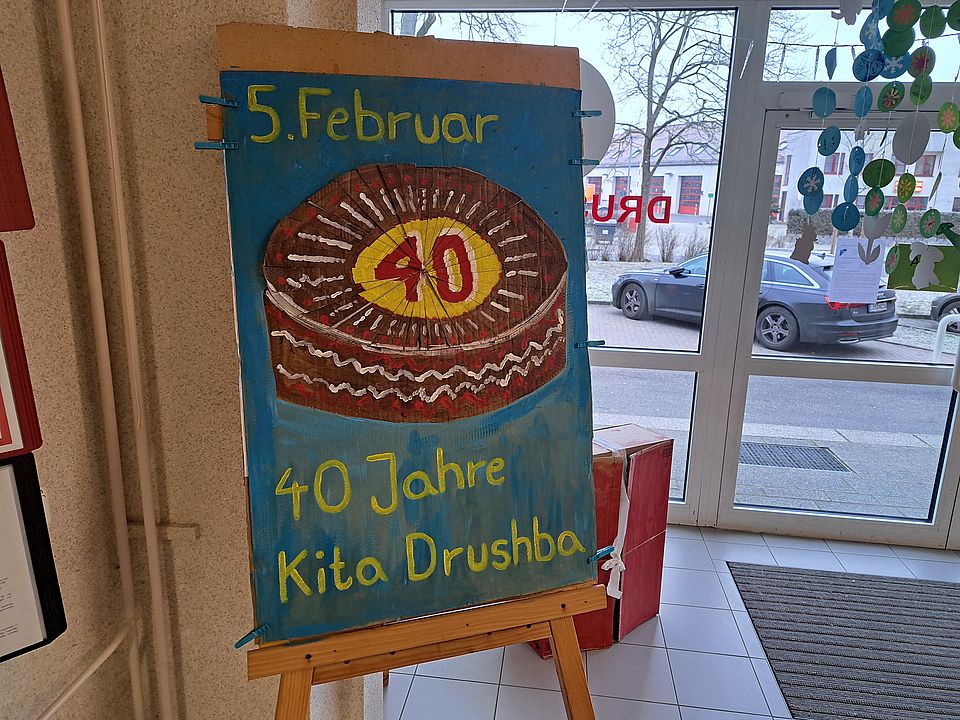 5. Februar
40
40 Jahre
Kita Drushba
DRU